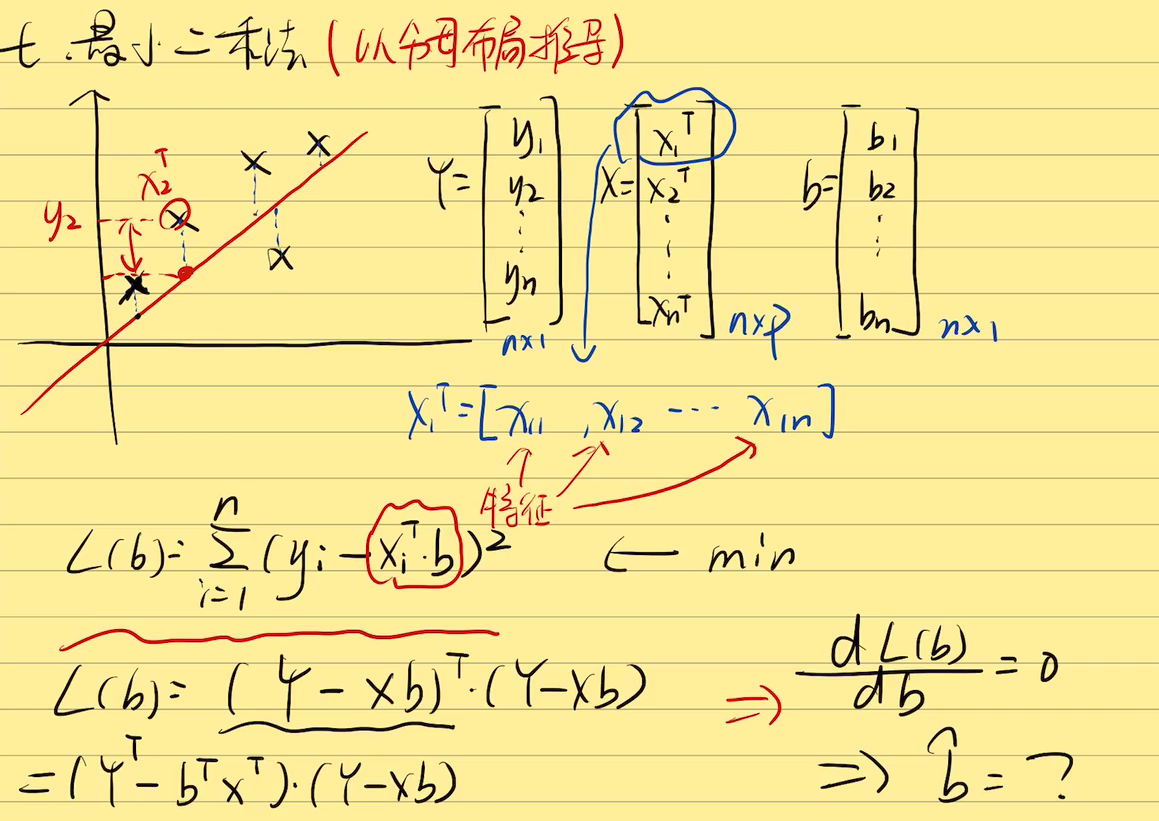 七、最小二乘法(以分母布局推导)
x₂ᵀ
y₂
Y=[y₁ y₂ ⋮ yₙ] n×1
X=[x₁ᵀ x₂ᵀ ⋮ xₙᵀ] n×p
b=[b₁ b₂ ⋮ bₙ] n×1
x₁ᵀ=[x₁₁ , x₁₂ ⋯ x₁ₙ]
特征
L(b)=∑ⁿᵢ₌₁(yᵢ-xᵢᵀ·b)² ← min
L(b)=(Y-Xb)ᵀ·(Y-Xb) ⇒ dL(b)/db=0
=(Yᵀ-bᵀXᵀ)·(Y-Xb) ⇒ b̂=?